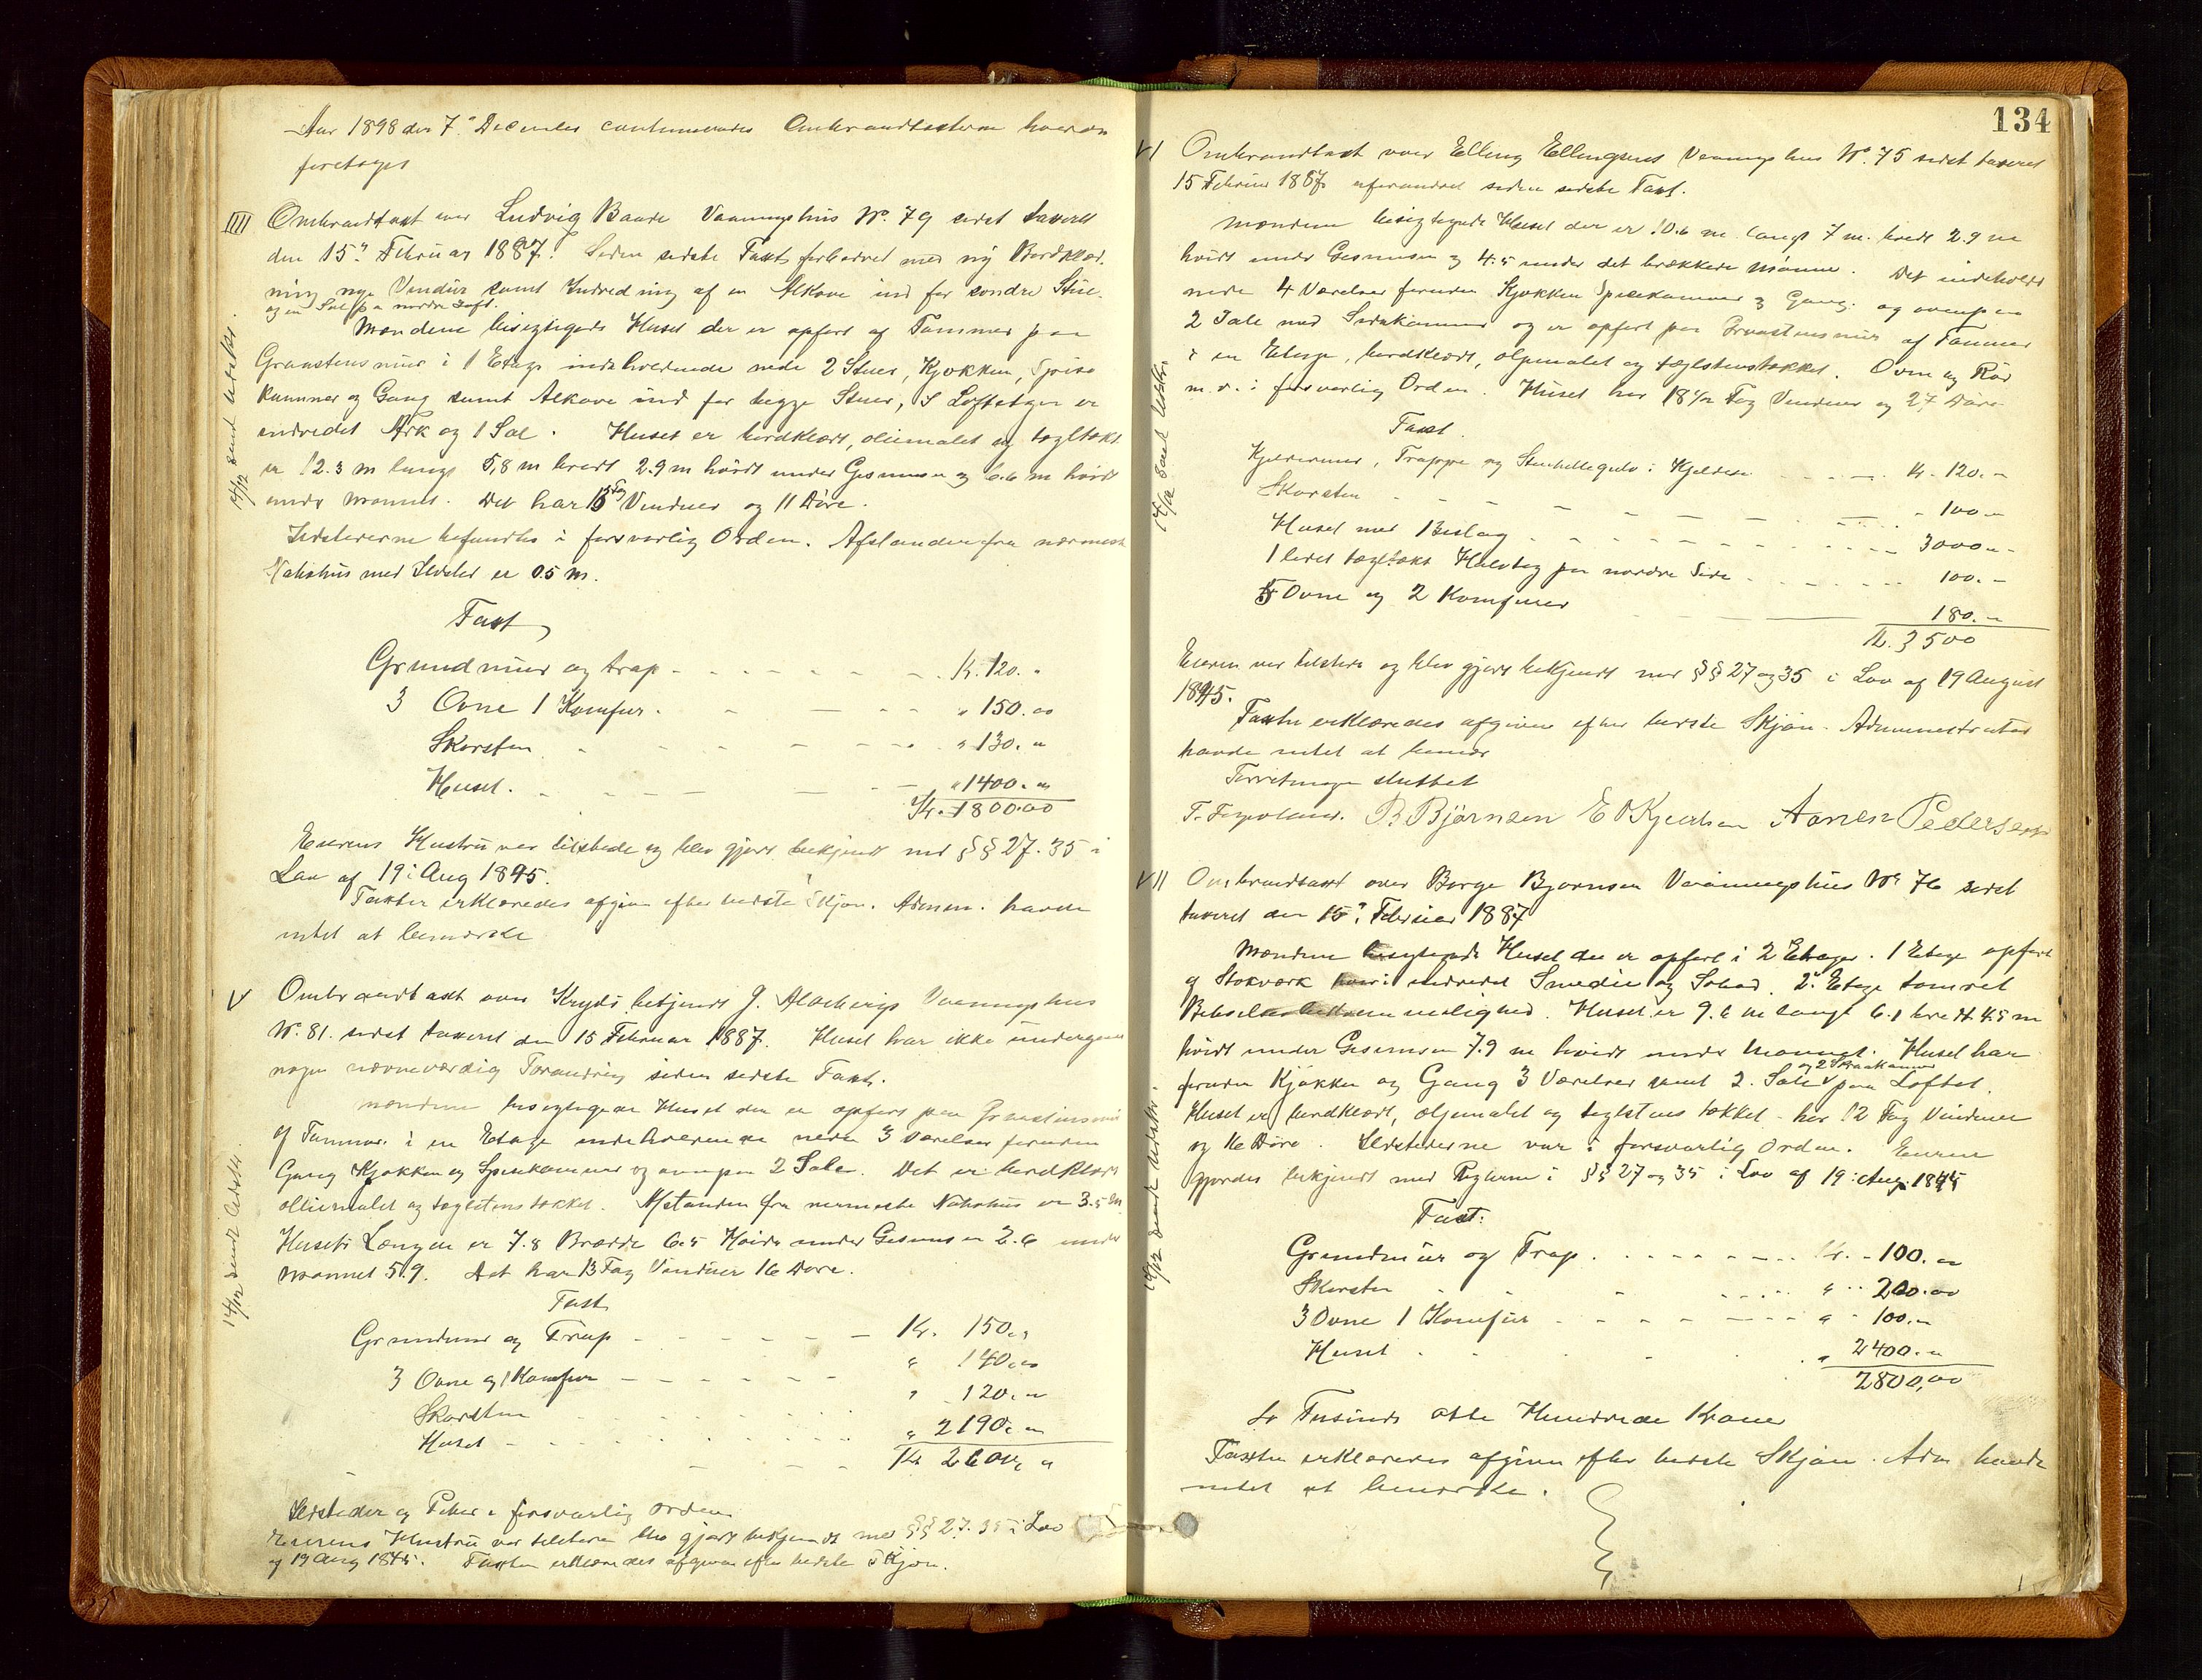 Aar 1898 den 7" December continueredes Ombrandtaxterne hvorda
foretoges
IIII Ombrandtaxt over Ludvig Baade Vaaningshus No. 79 sidst taxeret
den 15" Februar 1887. Siden sidste Taxt forbedret med ny Bordklæd.
ning nye Vinduer samt Indredning af en Alkove ind for søndre Stue.
og en Sal paa nordre Loft.
Mændene besigtigede Huset der er opført af Tømmer paa
Graastensmur i 1 Etage indeholdende nede 2 Stuer, Kjøkken, Spise
kammer og Gang samt Alkove ind for begge Stuer, I Loftetagen er
indredet Ark og 1 Sal. Huset er bordklædt, oliemalet og tagltækt
er 12.3 m langt 5,8 m bredt 2.9 m høidt under Gesimsen og 6.6 m høidt
under Mønnet. Det har 15 Fag Vinduer og 11 Døre.
Ildstederne befandtes i forsvarlig Orden. Afstanden fra nærmeste
Nabohus med Ildsted er 0.5 m.
Taxt
Grundmur og trap - - - Kr. 120. "
3 Ovne 1 Komfur. - - - " 150.00
Skorsten - - - " 130. "
Huset. - - - " 1400. "
Kr. 1800.00
Eierens Hustru var tilstede og blev gjort bekjendt med §§ 27. 35 i
Lov af 19: Aug 1845.
Taxten erklæredes afgiven efter bedste Skjøn. Admin. havde
intet at bemærke
14/12 sendt Udskr.
V Ombrandtaxt over Kryds betjendt J. Aasbergs Vaaningshus
No. 81. sidst taxeret den 15 Februar 1887. Huset har ikke undergaaet
nogen nævneværdig Forandring siden sidste Taxt.
Mændene besigtigede Huset der er opført paa Graastensmur
af Tømmer i en Etage indeholdende nede 3 Værelser foruden
Gang Kjøkken og Spisekammer og ovenpaa 2 Sale. Det er bordklædt
olliemalet og taglstenstækket. Afstanden fra nærmeste Nabohus er 3.5 m
Husets Længde er 7.8 Bredde 6.5 Høide under Gesimsen 2.6 under
Mønnet 5.9. Det har 13 Fag Vinduer 16 Døre.
Taxt
Grundmur og Trap - - - Kr. 150. "
3 Ovne og 1 Komfur - - - " 140. "
Skorsten " 120. "
Huset - - - " 2190. "
Kr. 2600. "
Ildsteder og Piber i forsvarlig Orden
Eierens Hustru var tilstede blev gjort bekjendt med §§ 27. 35 i Lov
af 19 Aug 1845. Taxten erklæredes afgiven efter bedste Skjøn.
14/12 sendt Udskr.
134
VI Ombrandtaxt over Elling Ellingsens Vaaningshus No. 75 sidst taxeret
15 Februar 1887 uforandret siden sidste Taxt.
Mændene besigtigede Huset der er 10.6 m langt 7 m. bredt 2.9 m
høidt under Gesimsen og 4.5 under det brækkede Mønne. Det indeholdt
nede 4 Værelser foruden Kjøkken Spisekammer & Gang. og ovenpaa
2 Sale med Sidekammer og er opført paa Graastensmur af Tømmer
i en Etage, bordklædt, oljemalet og taglstenstækket. Ovne og Rør
m. v. i forsvarlig Orden. Huset har 18 1/2 Fag Vinduer og 27 Døre
Taxt.
Kjeldermur, Trappe og Stenhellegulv i Kjelderen - - - Kr. 120. "
Skorsten - - - " 100 "
Huset med Beslag - - - 3000 "
1 lidet tagltækt Halvtag paa nordre Side - - - 100. "
5 Ovne og 2 Komfurer - - - 180. "
Kr. 3500
Eieren var tilstede og blev gjort bekjendt med §§ 27 og 35 i Lov af 19 August
1845.
Taxten erklæredes afgiven efter bedste Skjøn. Administrator
havde intet at bemær
Forretningen sluttet
B. Bjørnsen Pedersen
14/12 sendt Udskr.
VII Ombrandtaxt over Børge Bjørnsen Vaaningshus No 76 sidst
taxeret den 15" Februar 1887
Mændene besigtigede Huset der er opført i 2 Etager. 1 Etage opført
af Stokværk hvori indredet Smedie og Sobod. 2" Etage tømret
Huset er 9.6 m langt 6.1 bredt 4.5 m
høidt under Gesimsen 7.9 m høidt under Mønnet. Huset har
foruden Kjøkken og Gang 3 Værelser samt 2 Sale og 2 Skraakammer paa Loftet.
Huset er bordklædt, oljemalet og taglstenstækket - har 12 Fag Vinduer
og 16 Døre. Ildstederne var i forsvarlig Orden. Eieren
gjordes bekjendt med Reglerne i §§ 27 og 35 i Lov af 19: Aug: 1845
Taxt:
Grundmur og Trap. - - - Kr. - 100. "
Skorsten - - - " 200.00
3 Ovne 1 Komfur - - - " 100. "
Huset - - - " 2400. "
2800,00
to Tusinde otte Hundrede Kroner
Taxten erklæredes afgiven efter bedste Skjøn. Adm havde
intet at bemærke.
14/12 sendt Udskr.